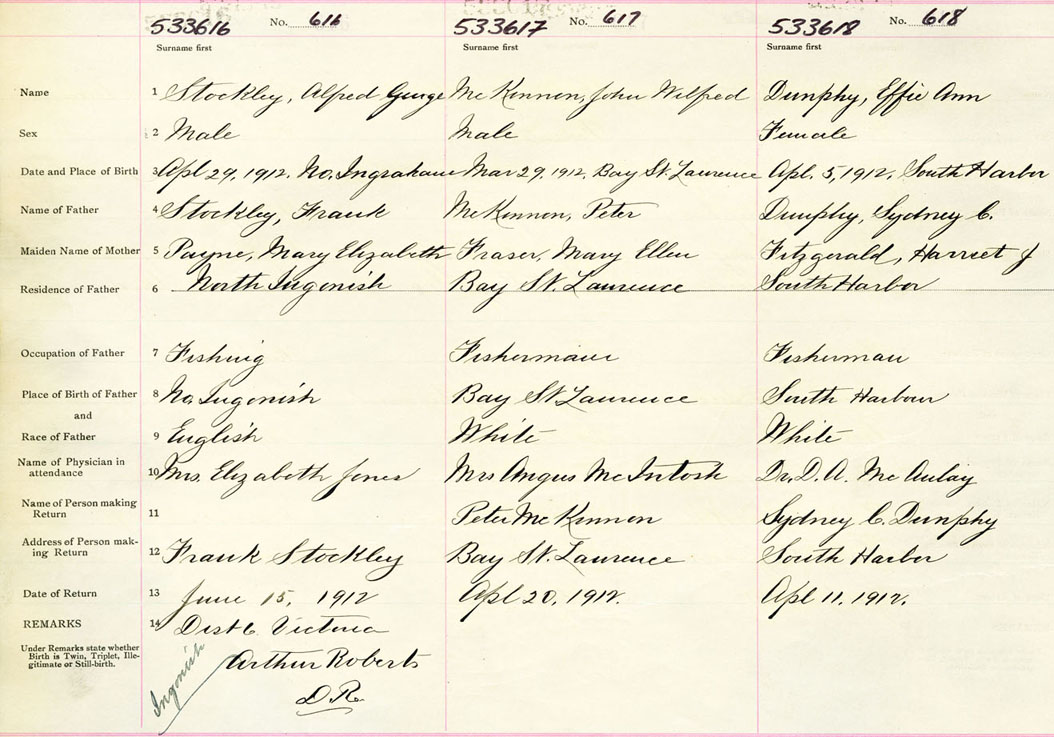 533616 No. 616 533617 No. 617 533618 No. 618
Surname first Surname first Surname first
Name 1 Stockley, Alfred George McKinnon, John Wilfred Dunphy, Effie Ann
Sex 2 Male Male Female
Date and Place of Birth 3 Apl 29, 1912. No. Mar 29, 1912, Bay St. Laurence Apl. 5, 1912, South Harbor
Name of Father 4 Stockley, Frank McKinnon, Peter Dunphy, Sydney C.
Maiden Name of Mother 5 Payne, Mary Elizabeth Fraser, Mary Ellen Fitzgerald, Harriet J
Residence of Father 6 North Ingonish Bay St. Laurence South Harbor
Occupation of Father 7 Fishing Fisherman Fisherman
Place of Birth of Father 8 No. Ingonish Bay St Laurence South Harbour
and
Race of Father 9 English White White
Name of Physician in
attendance 10 Mrs. Elizabeth Jones Mrs Angus McIntosh Dr. D. A. McAulay
Name of Person making
Return 11 Peter McKinnon Sydney C. Dunphy
Address of Person mak-
ing Return 12 Frank Stockley Bay St. Laurence South Harbor
Date of Return 13 June 15, 1912 Apl 20, 1912. Apl 11, 1912.
REMARKS 14 Dist 6 Victoria
Under Remarks state whether
Birth is Twin, Triplet, Ille-
gitimate or Still-birth.
Arthur Roberts
D.R.
Ingonish